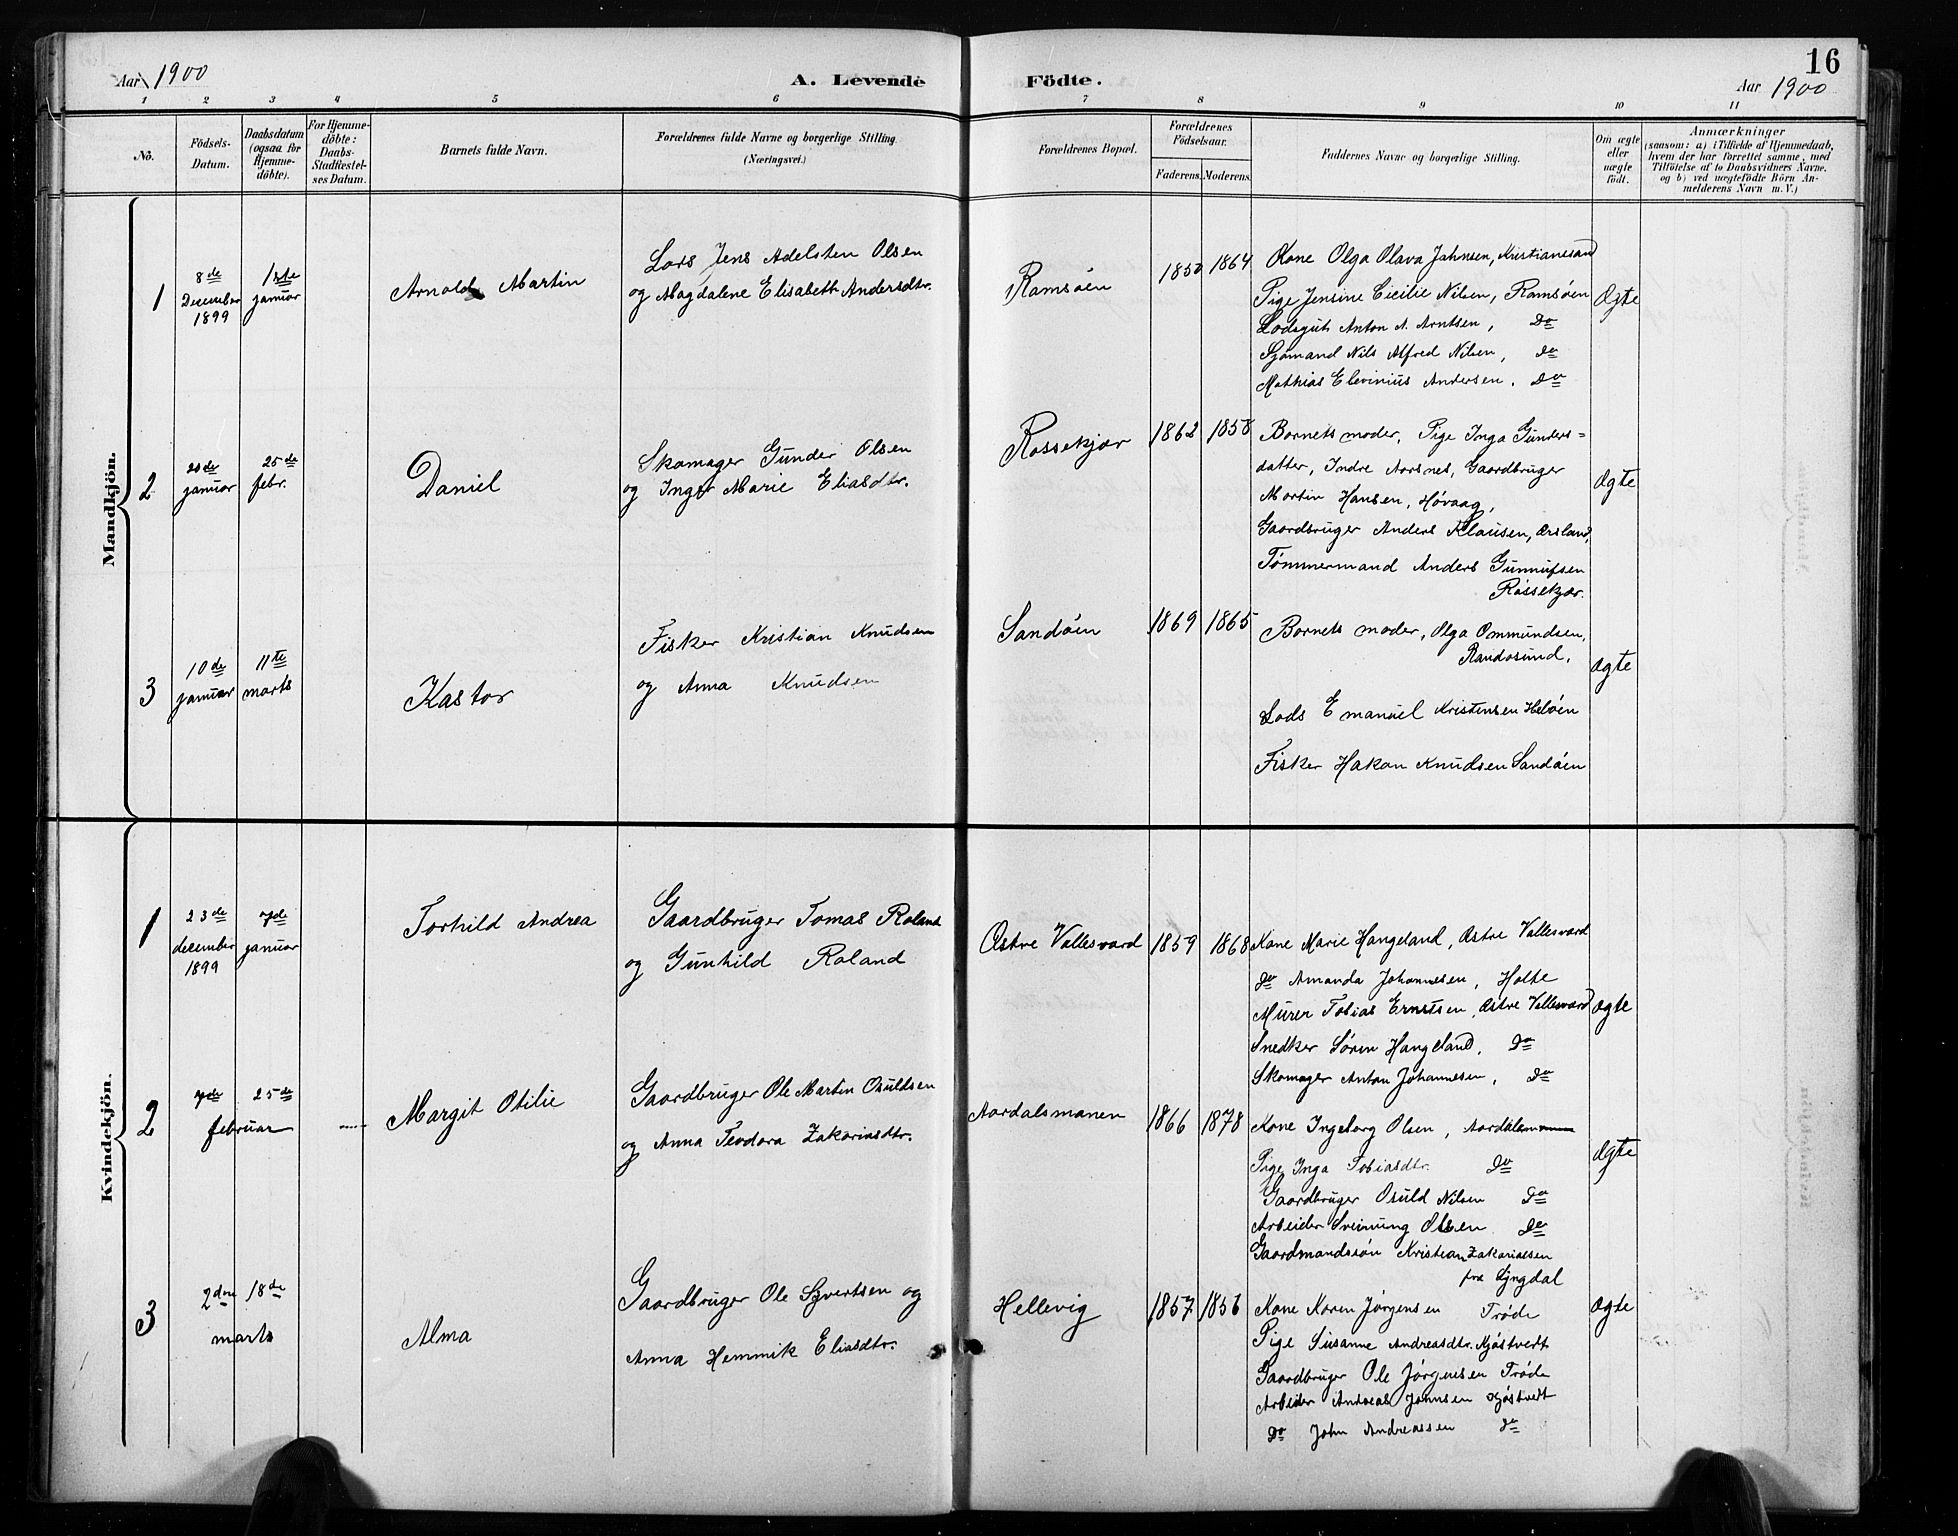 16
Aar 1900
A. Levende Födte.
Aar 1900
1 2 3 4 5 6 7 8 9 10 11
No.
Födsels-
Datum.
Daabsdatum
(ogsaa for
Hjemme-
döbte).
For Hjemme-
döbte:
Daabs-
Stadfæstel-
ses Datum.
Barnets fulde Navn.
Forældrenes fulde Navne og borgerlige Stilling
(Næringsvei.)
Forældrenes Bopæl.
Forældrenes
Födselsaar.
Faderens. Moderens.
Faddernes Navne og borgerlige Stilling.
Om ægte
eller
uægte
födt.
Anmærkninger
(saasom: a) i Tilfælde af Hjemmedaab,
hvem der har forrettet samme, med
Tilföielse af to Daabsvidners Navne.
og b) ved uægtefödte Börn An-
melderens Navn m. V.)
Mandkjön.
1
8de
December
1899
1ste
januar
Arnold Martin
Lods Jens Adelsten Olsen
og Magdalene Elisabeth Andersdtr.
Ramsøen
1850 1864
Kone Olga Olava Jahnsen, Kristianssand
Pige Jensine Cicilie Nilsen, Ramsøen
Lodsgut Anton A. Arntsen, Do
Sjømand Nils Alfred Nilsen, do
Mathias Elevinius Andersen, Do
Ægte
2
20de
januar
25de
febr.
Daniel
Skomager Gunder Olsen
og Inger Marie Eliasdtr.
Rossekjær
1862 1858
Barnets moder, Pige Inga Gunders=
datter, Indre Aarsnes, Gaardbruger
Martin Hansen, Høvaag,
Gaardbruger Anders Klausen, Ørsland,
Tømmermand Anders Gunnufsen
Rossekjær.
Ægte
3
10de
januar
11te
marts
Kastor
Fisker Kristian Knudsen
og Anna Knudsen
Sandøen
1869 1865
Barnets moder, Olga Ommundsen,
Randøsund,
Lods Emanuel Kristensen Heløen
Fisker Hakon Knudsen Sandøen
Ægte
Kvindekjön.
1
23de
december
1899
7de
januar
Torhild Andrea
Gaardbruger Tomas Roland
og Gunhild Roland
Østre Vallesvard
1859 1868
Kone Marie Hangeland, Østre Vallesvard
do Amanda Johannesen, Holte
Murer Tobias Ernstsen, Østre Vallesvard
Snedker Søren Hangeland, Do
Skomager Anton Johannesen, do
Ægte
2
7de 25de
februar
Margit Otilie
Gaardbruger Ole Martin Osuldsen
og Anna Teodora Zakariasdtr.
Aardalsmonen
1866 1878
Kone Ingeborg Olsen, Aardalsmonen
Pige Inga Tobiasdtr. Do
Gaardbruger Osuld Nilsen Do
Arbeider Sveinung Olsen Do
Gaardmandssøn Kristian Zakariasen
fra Lyngdal
Ægte
3
2den 18de
marts
Alma
Gaardbruger Ole Syvertsen og
Anna Hemmik Eliasdtr.
Hellevig
1857 1856
Kone Karen Jørgensen Trøde
Pige Susanne Andreasdtr. Kjøstvedt
Gaardbruger Ole Jørgensen Trøde
Arbeider Andreas Johnsen Kjøstvedt
Do John Andreassen do
Ægte